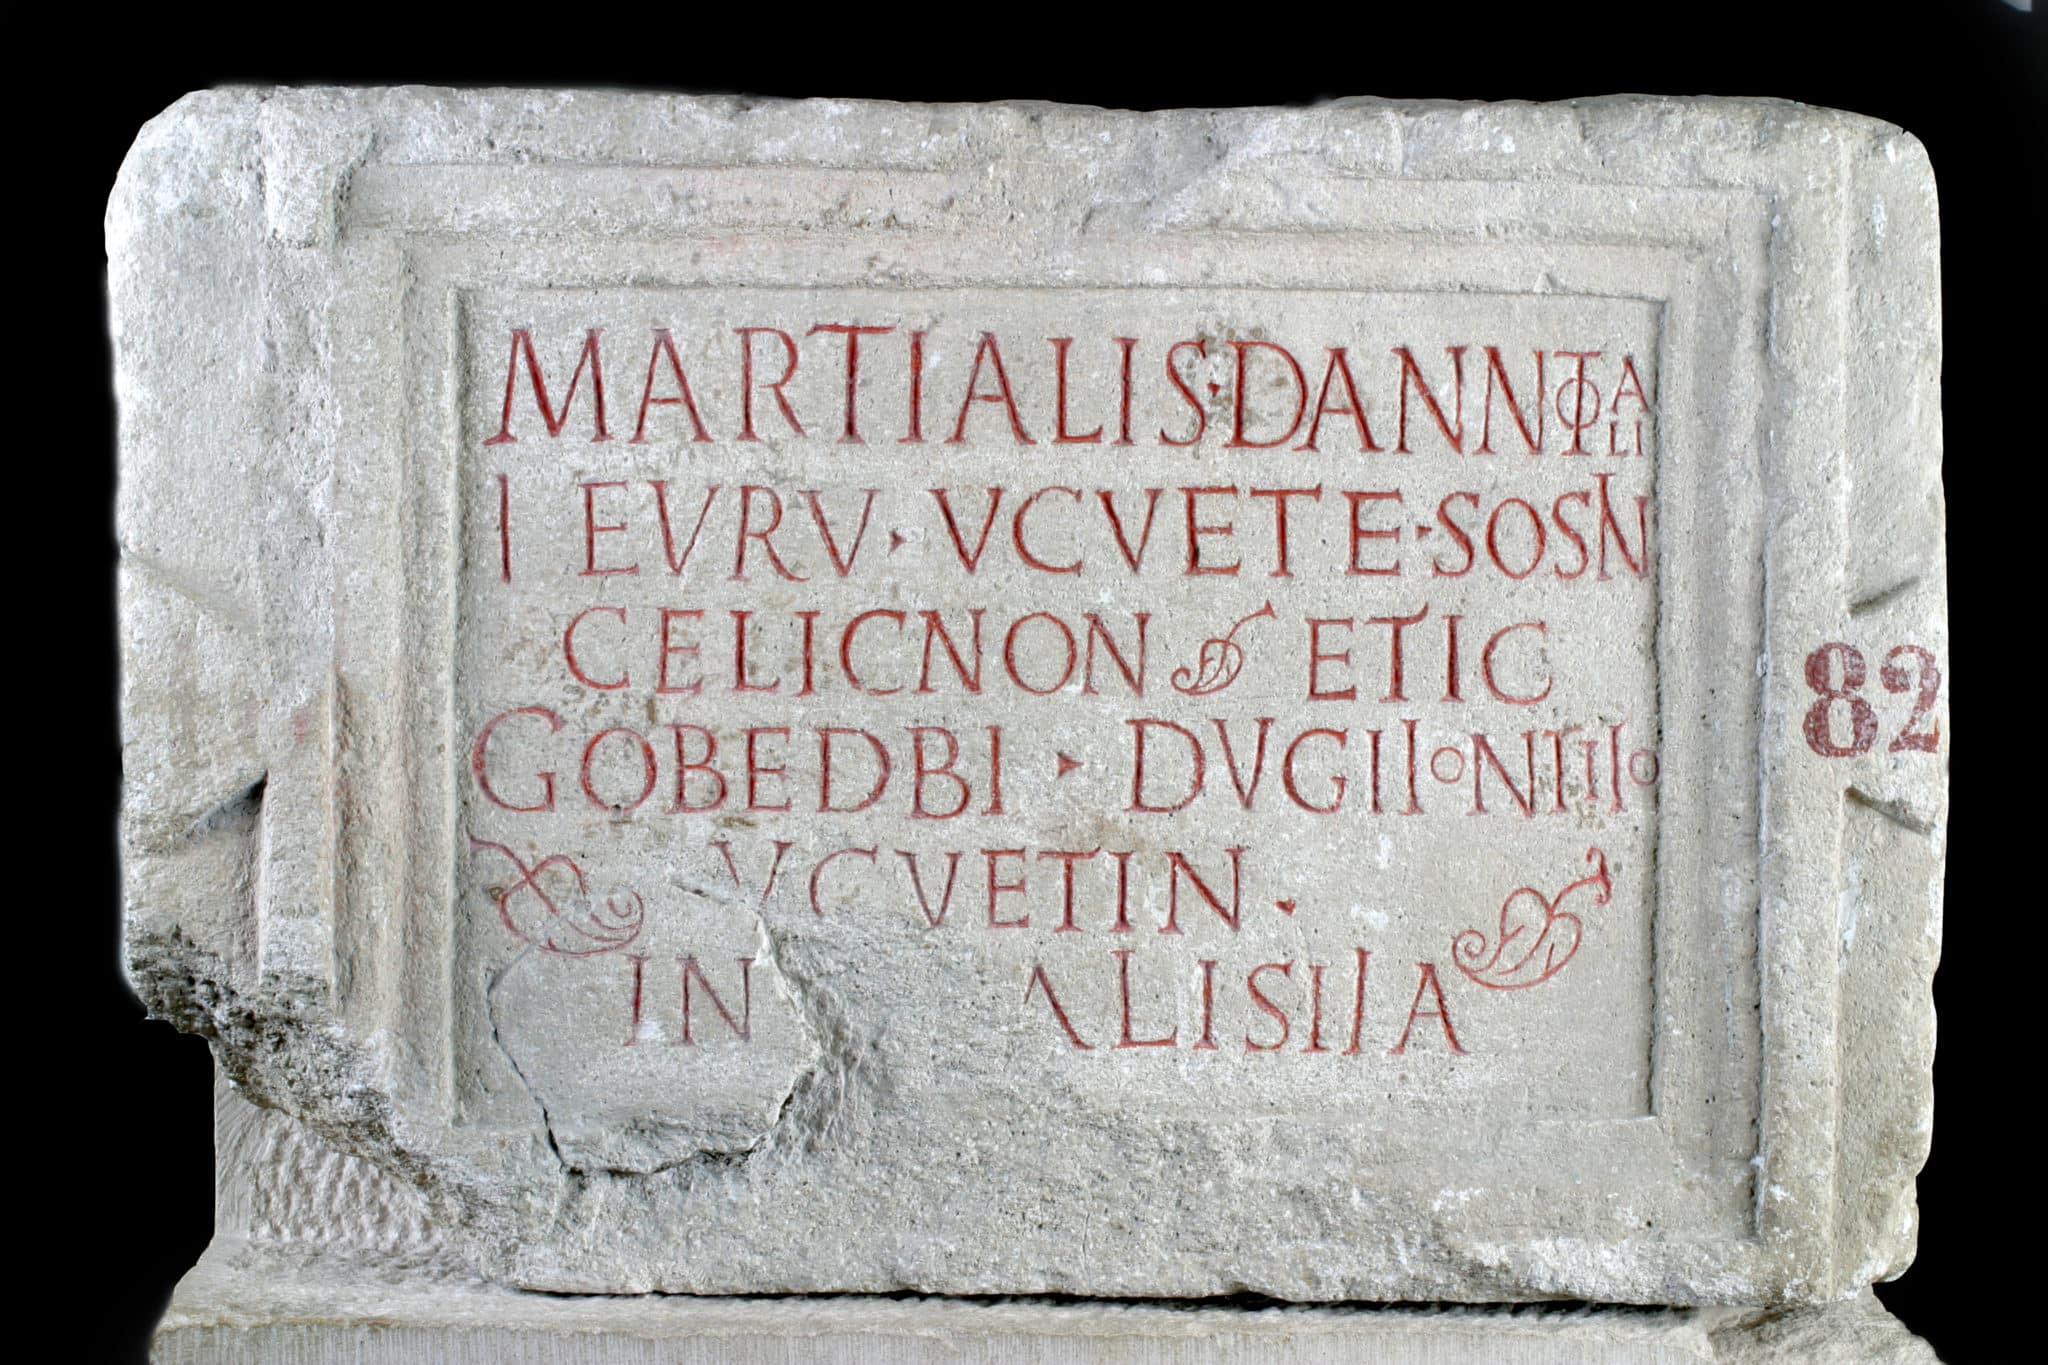 MARTIALIS · DANNOTALI
IEVRV · VCVETE · SOSIN
CELICNON ETIC
GOBEDBI · DVGIIONTIIO
VCVETIN ·
IN ALISIIA
82